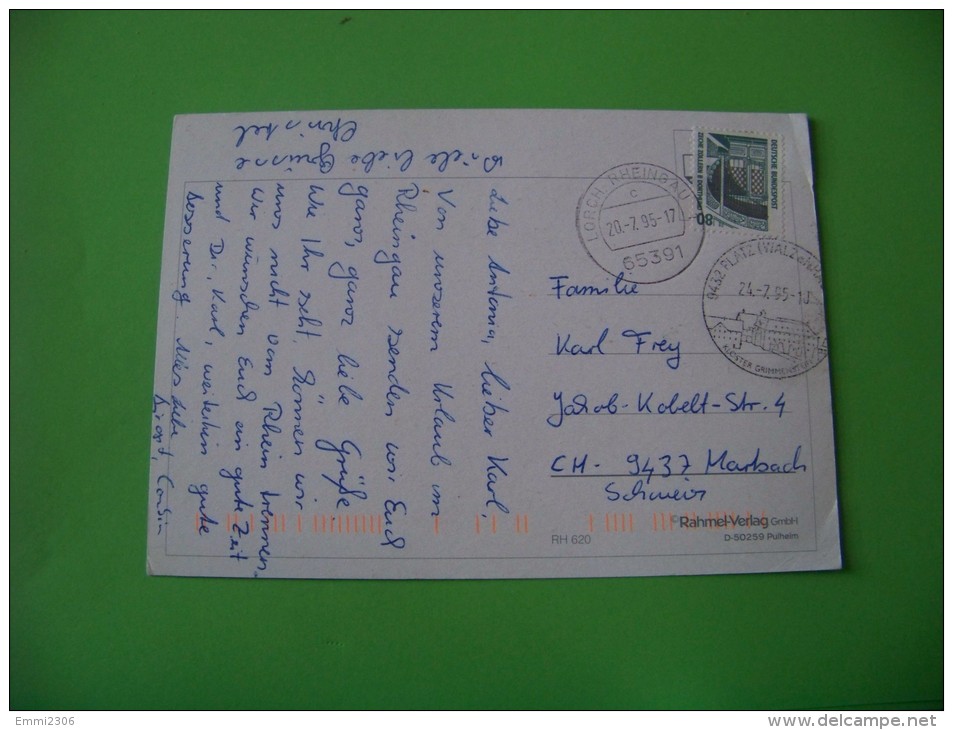 Liebe Antonia, lieber Karl,
Von unserem Urlaub im
Rheingau senden wir Euch
ganz, ganz liebe Grüße,
Wie Ihr seht, können wir
uns nicht vom Rhein trennen.
Wir wünschen Euch ein gute Zeit
und Dir, Karl, weiterhin gute
Besserung. Alles Liebe
Viele liebe Grüsse
Christel
LORCH, RHEINGAU
c
20.-7.95-17
65391
DEUTSCHE BUNDESPOST
ZECHE ZOLLERN II DORTMUND
80
9432 PLATZ (WALZENHAUSEN)
24.-7.95-10
KLOSTER GRIMMENSTEIN
Familie
Karl Frey
Jakob-Kobelt-Str. 4
CH- 9437 Marbach
Schweiz
©Rahmel-Verlag GmbH
D-50259 Pulheim
RH 620
Emmi2306
www.delcampe.net